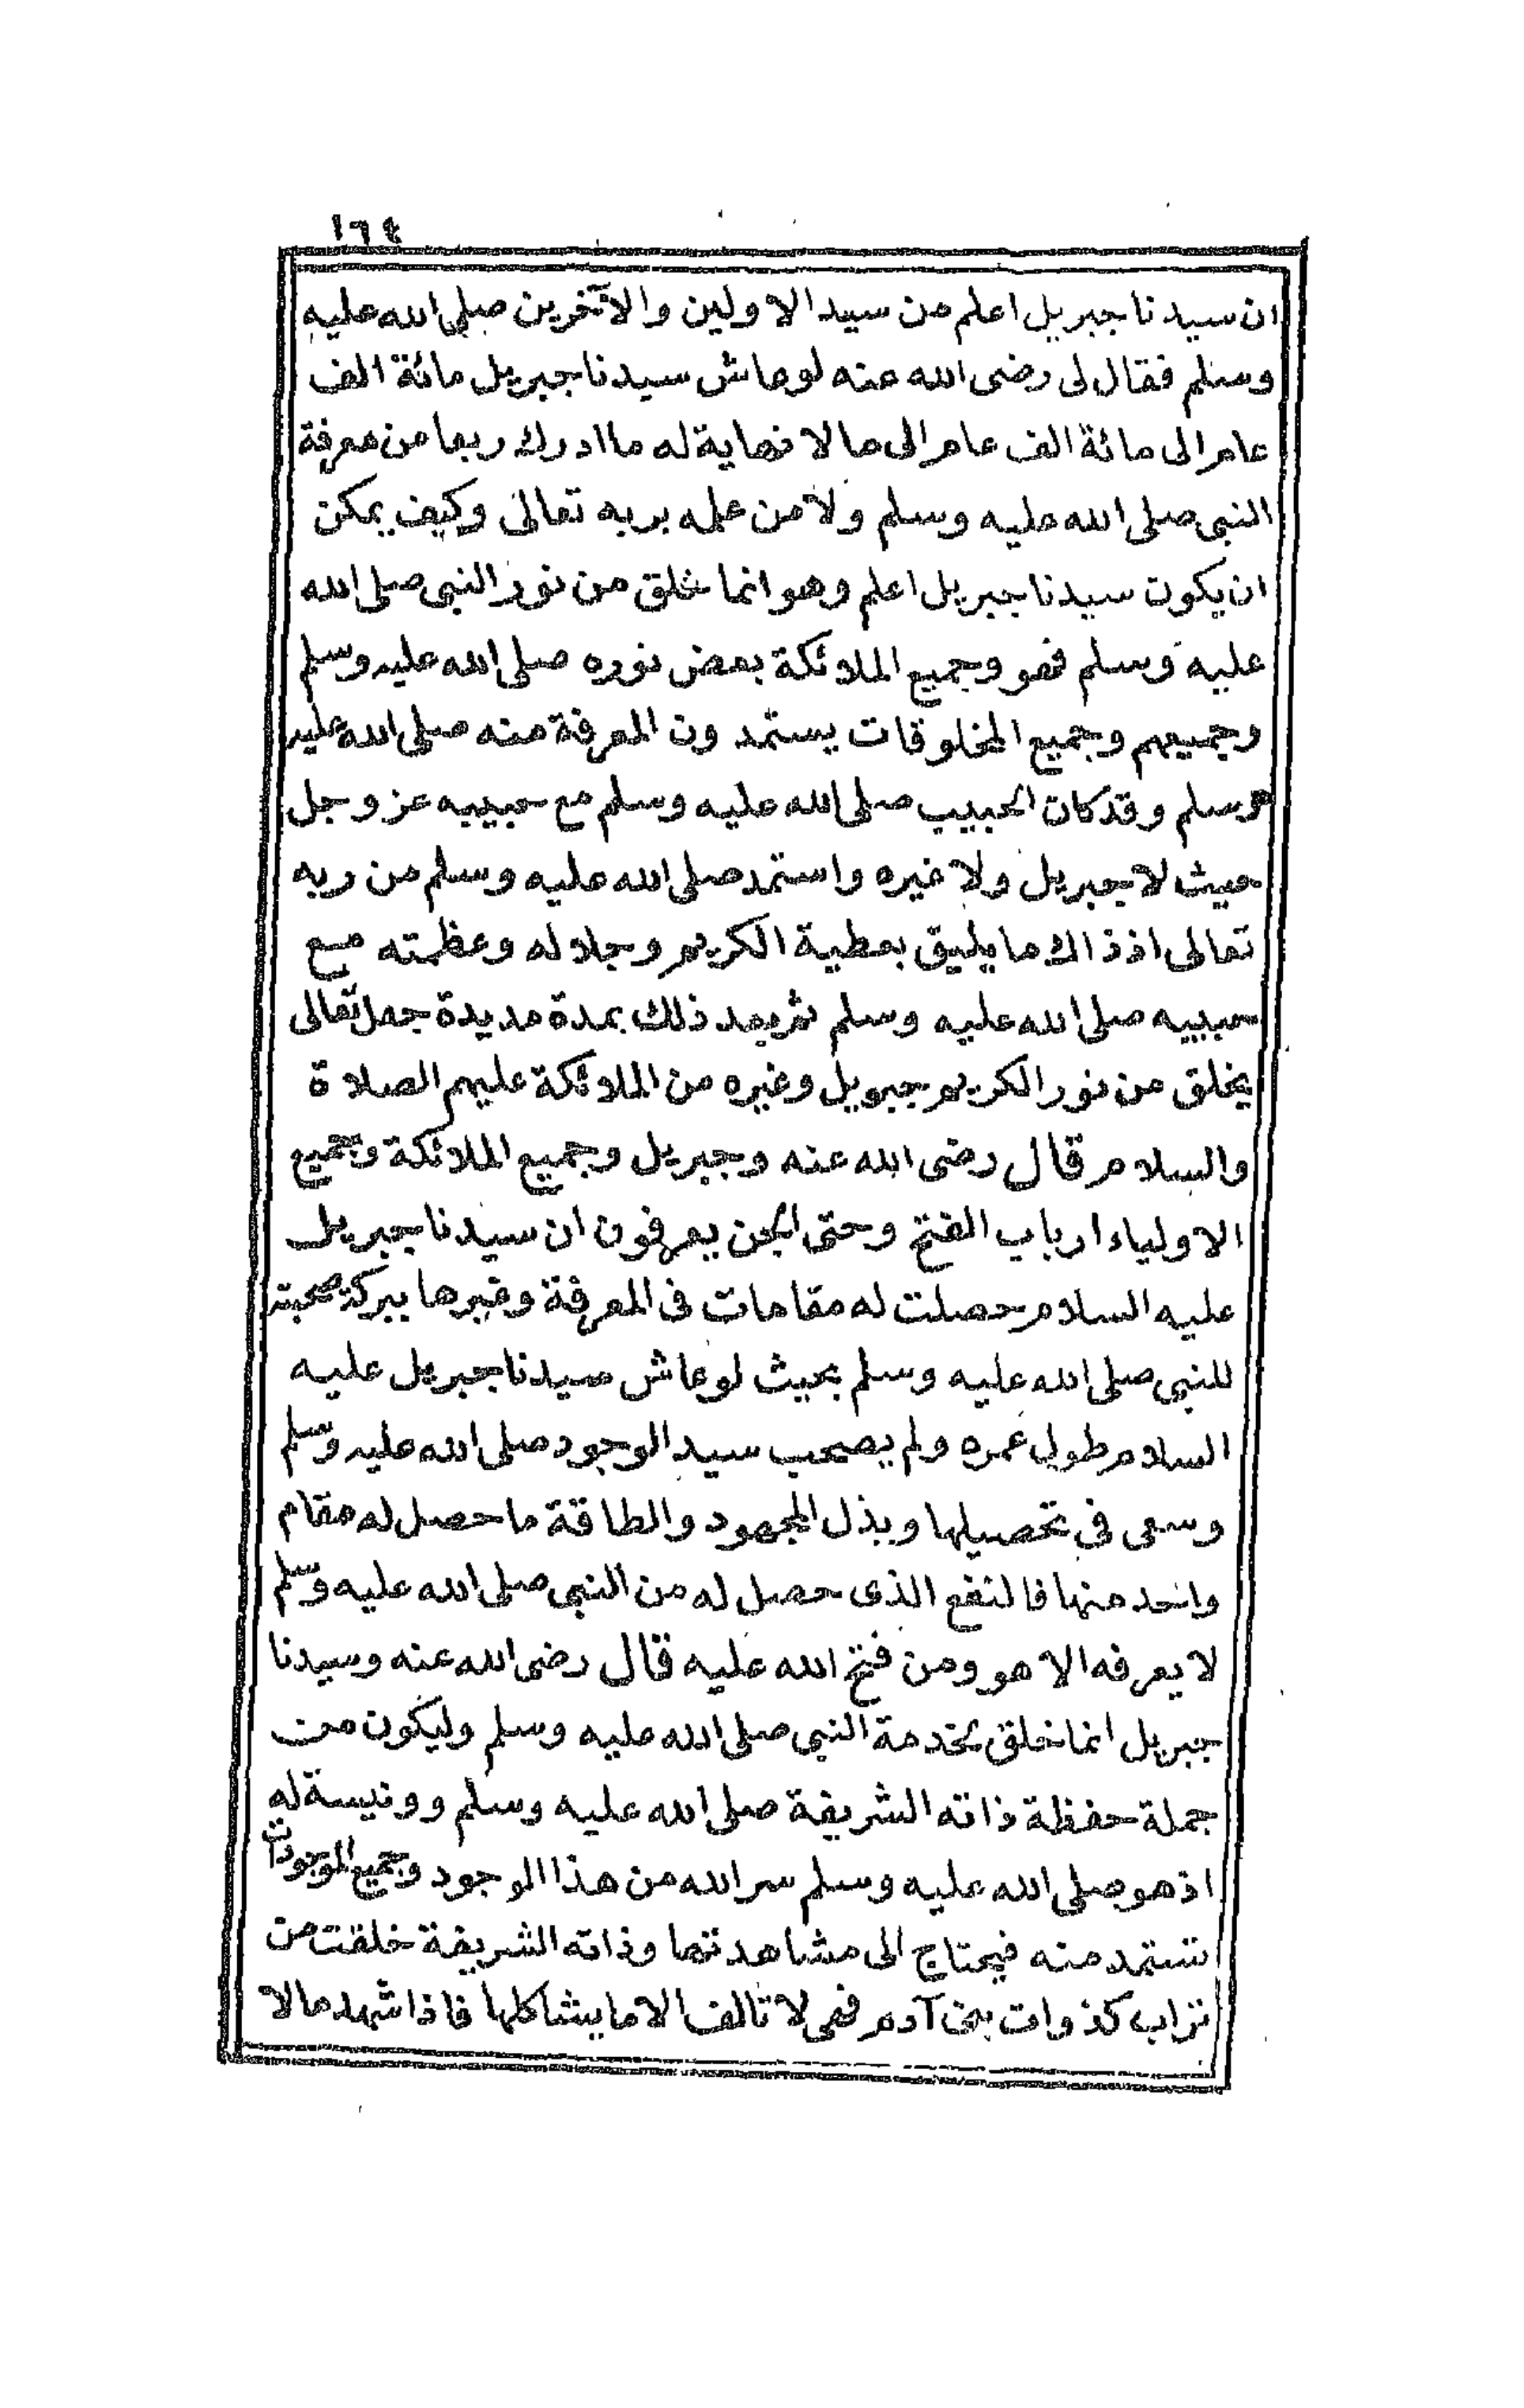 ١٦٤
ان سيدنا جبريل اعلم من سيد الاولين والآخرين صلى الله عليه
وسلم فقال لى رضى الله عنه لو عاش سيدنا جبريل مائة الف
عام الى مائة الف عام الى ما لا نهاية له ما ادرك ربعا من معرفة
النبى صلى الله عليه وسلم ولا من علمه بربه تعالى وكيف يمكن
ان يكون سيدنا جبريل اعلم وهو انما خلق من نور النبى صلى الله
عليه وسلم فهو وجميع الملائكة بعض نوره صلى الله عليه وسلم
وجميعهم وجميع المخلوقات يستمدون المعرفة منه صلى الله عليه
وسلم وقد كان الحبيب صلى الله عليه وسلم مع حبيبه عز وجل
حيث لا جبريل ولا غيره واستمد صلى الله عليه وسلم من ربه
تعالى اذ ذاك ما يليق بعطية الكريم وجلاله وعظمته مع
حبيبه صلى الله عليه وسلم ثم بعد ذلك بمدة مديدة جعل تعالى
يخلق من نور الكريم جبريل وغيره من الملائكة عليهم الصلاة
والسلام قال رضى الله عنه وجبريل وجميع الملائكة وجميع
الاولياء ارباب الفتح وحتى الجن يعرفون ان سيدنا جبريل
عليه السلام حصلت له مقامات فى المعرفة وغيرها ببركة صحبته
للنبى صلى الله عليه وسلم بحيث لو عاش سيدنا جبريل عليه
السلام طول عمره ولم يصحب سيد الوجود صلى الله عليه وسلم
وسعى فى تحصيلها وبذل المجهود والطاقة ما حصل له مقام
واحد منها فالنفع الذى حصل له من النبى صلى الله عليه وسلم
لا يعرفه الا هو ومن فتح الله عليه قال رضى الله عنه وسيدنا
جبريل انما خلق لخدمة النبى صلى الله عليه وسلم وليكون من
جملة حفظة ذاته الشريفة صلى الله عليه وسلم وونيسة له
اذ هو صلى الله عليه وسلم سر الله من هذا الموجود وجميع الموجودات
تستمد منه فيحتاج الى مشاهدتها وذاته الشريفة خلقت من
تراب كذوات بنى آدم فهى لا تالف الا ما يشاكلها فاذا شهد ما لا